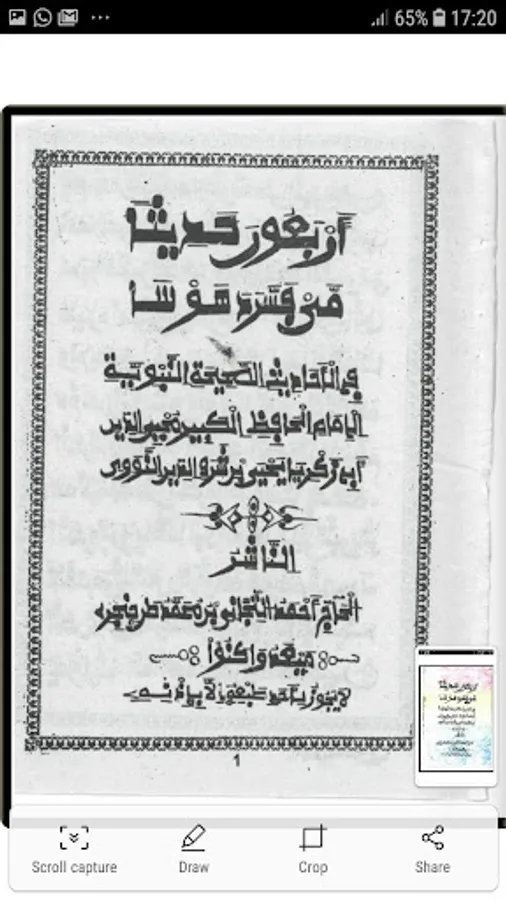 65% 17:20
أربعون حديثا
هوسا
في الأحاديث الصحيحة النبوية
الإمام الحافظ الكبير محيي الدين
أبي زكريا يحيى بن شرف الدين النووي
الناشر
الحاج أحمد التجاني بن
لا يجوز لأحد طبعه إلا بإذنه
1
Scroll capture Draw Crop Share